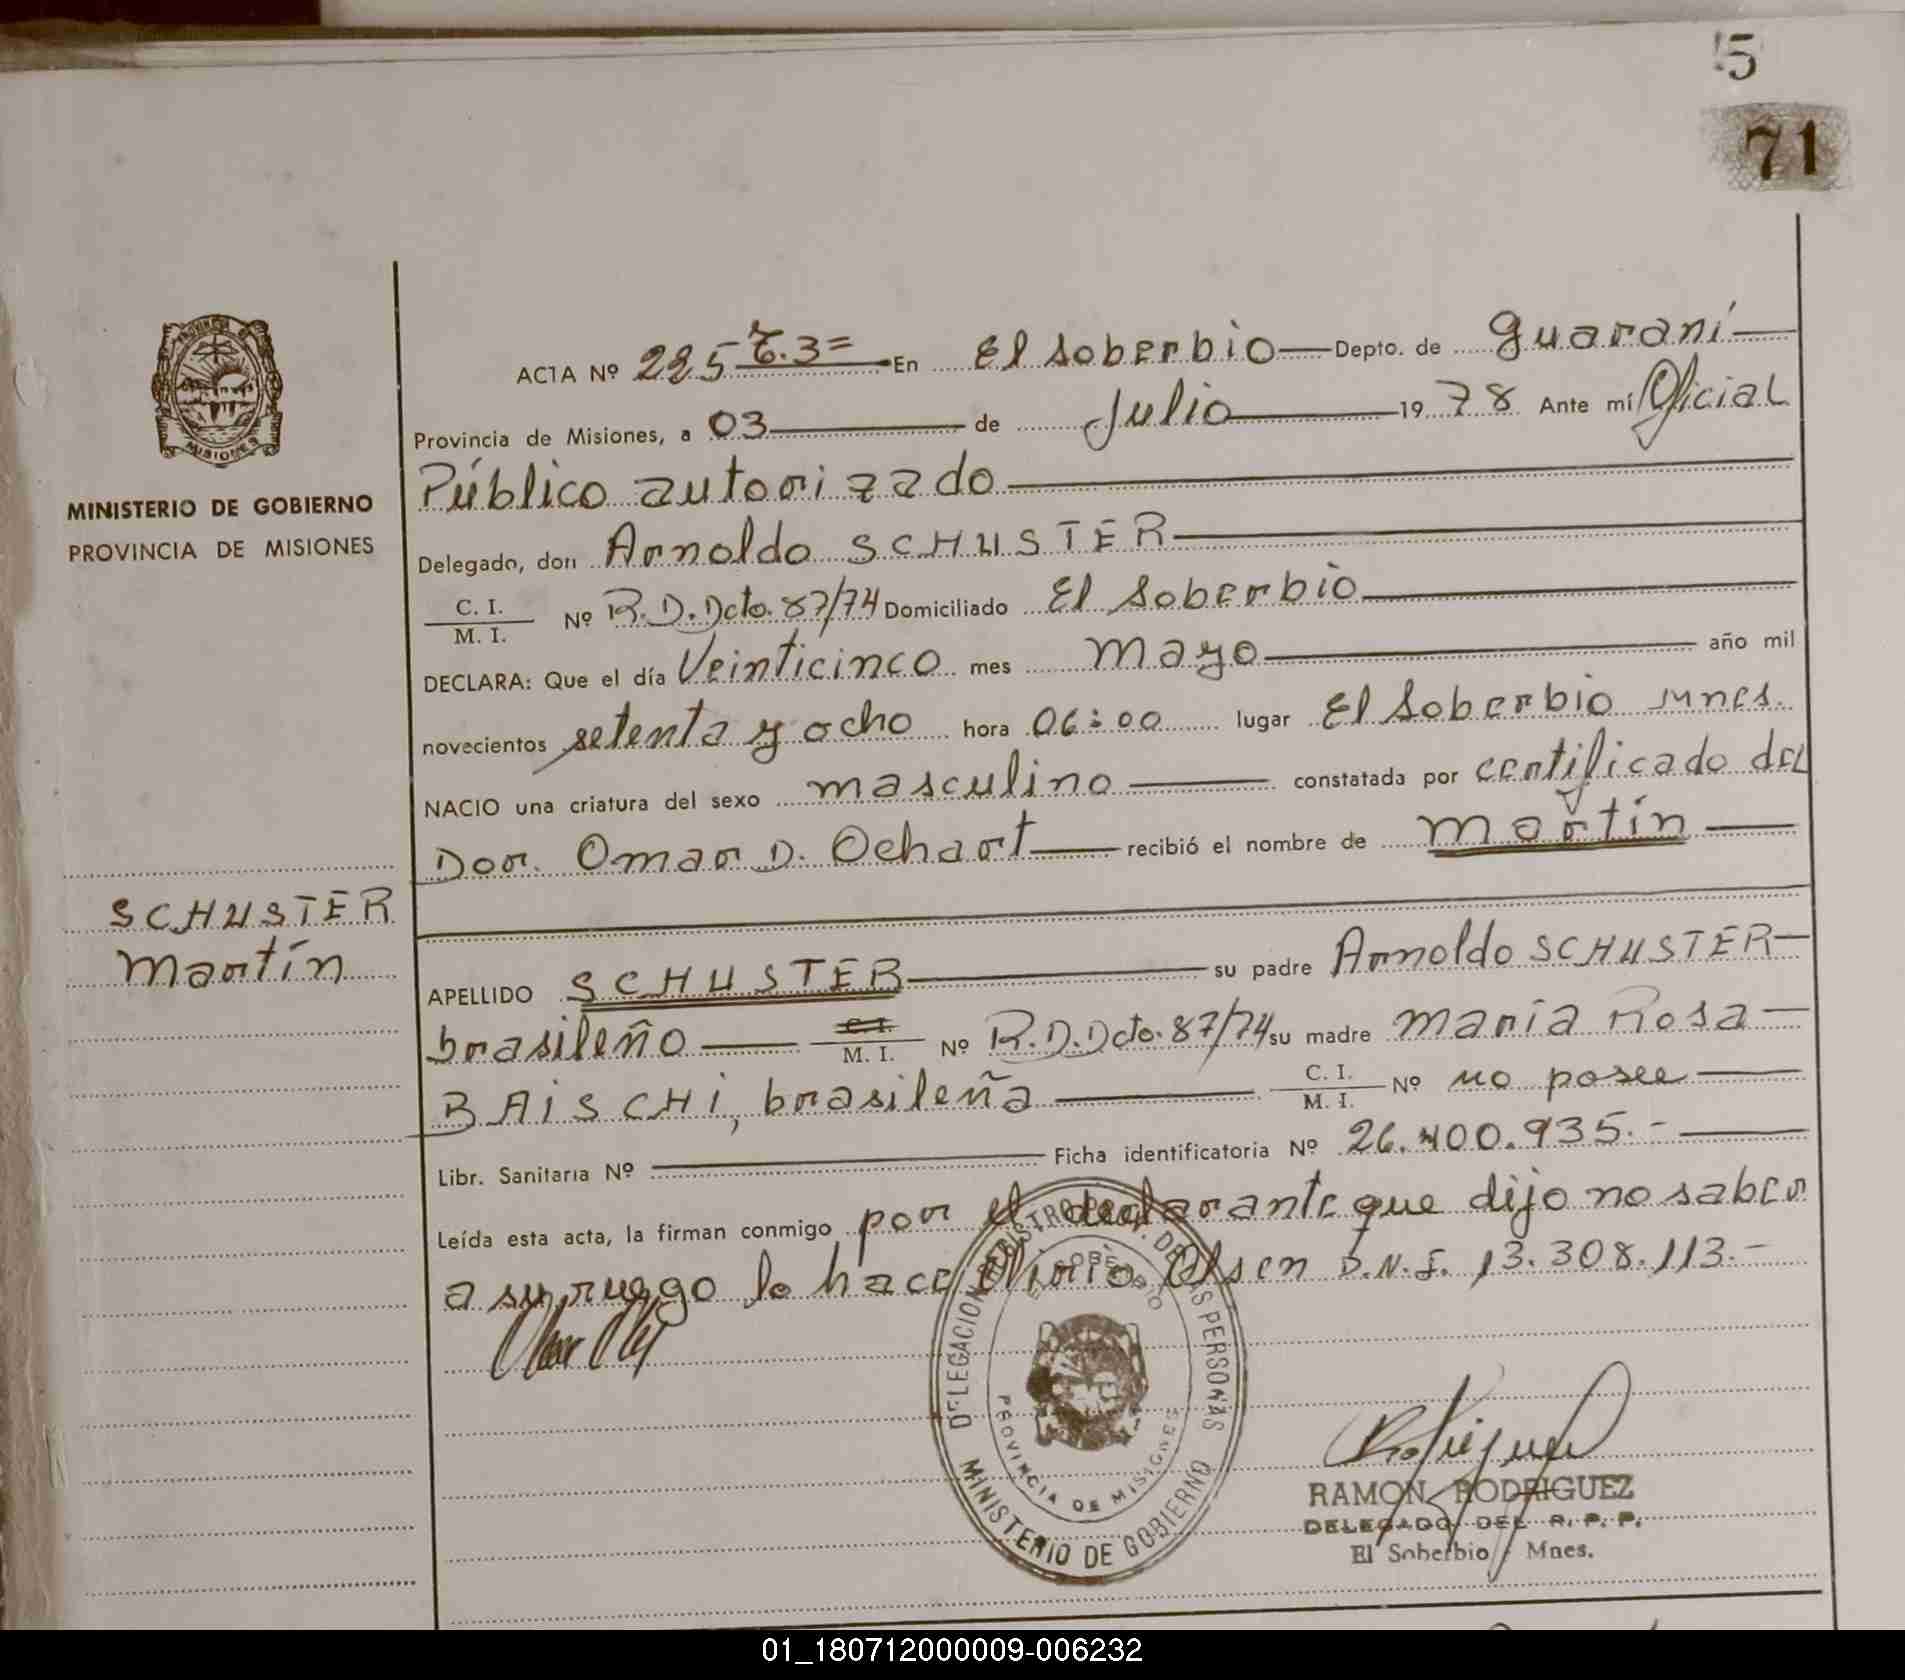 5
71
ACTA Nº 225 T.3= En El Soberbio Depto. de Guaraní
Provincia de Misiones, a 03 de Julio 1978 Ante mí Oficial
Público autorizado
MINISTERIO DE GOBIERNO
PROVINCIA DE MISIONES
Delegado, don Arnoldo SCHUSTER
C. I. / M. I. Nº R.D.Dcto. 87/74 Domiciliado El Soberbio
DECLARA: Que el día Veinticinco mes mayo año mil
novecientos setenta y ocho hora 06:00 lugar El Soberbio Mnes.
NACIO una criatura del sexo masculino constatada por certificado del
Dor. Omar D. Ochart recibió el nombre de Martín
SCHUSTER
Martín
APELLIDO SCHUSTER su padre Arnoldo SCHUSTER
brasileño C. I. / M. I. Nº R.D.Dcto. 87/74 su madre María Rosa
BAiSCHi, brasileña C. I. / M. I. Nº no posee
Libr. Sanitaria Nº Ficha identificatoria Nº 26.400.935.-
Leída esta acta, la firman conmigo por el declarante que dijo no saber
a su ruego lo hace Olsen D.N.I. 13.308.113.-
DELEGACION REGISTRO PROV. DE LAS PERSONAS
EL SOBERBIO
PROVINCIA DE MISIONES
MINISTERIO DE GOBIERNO
RAMON RODRIGUEZ
DELEGADO DEL R. P. P.
El Soberbio - Mnes.
01_180712000009-006232